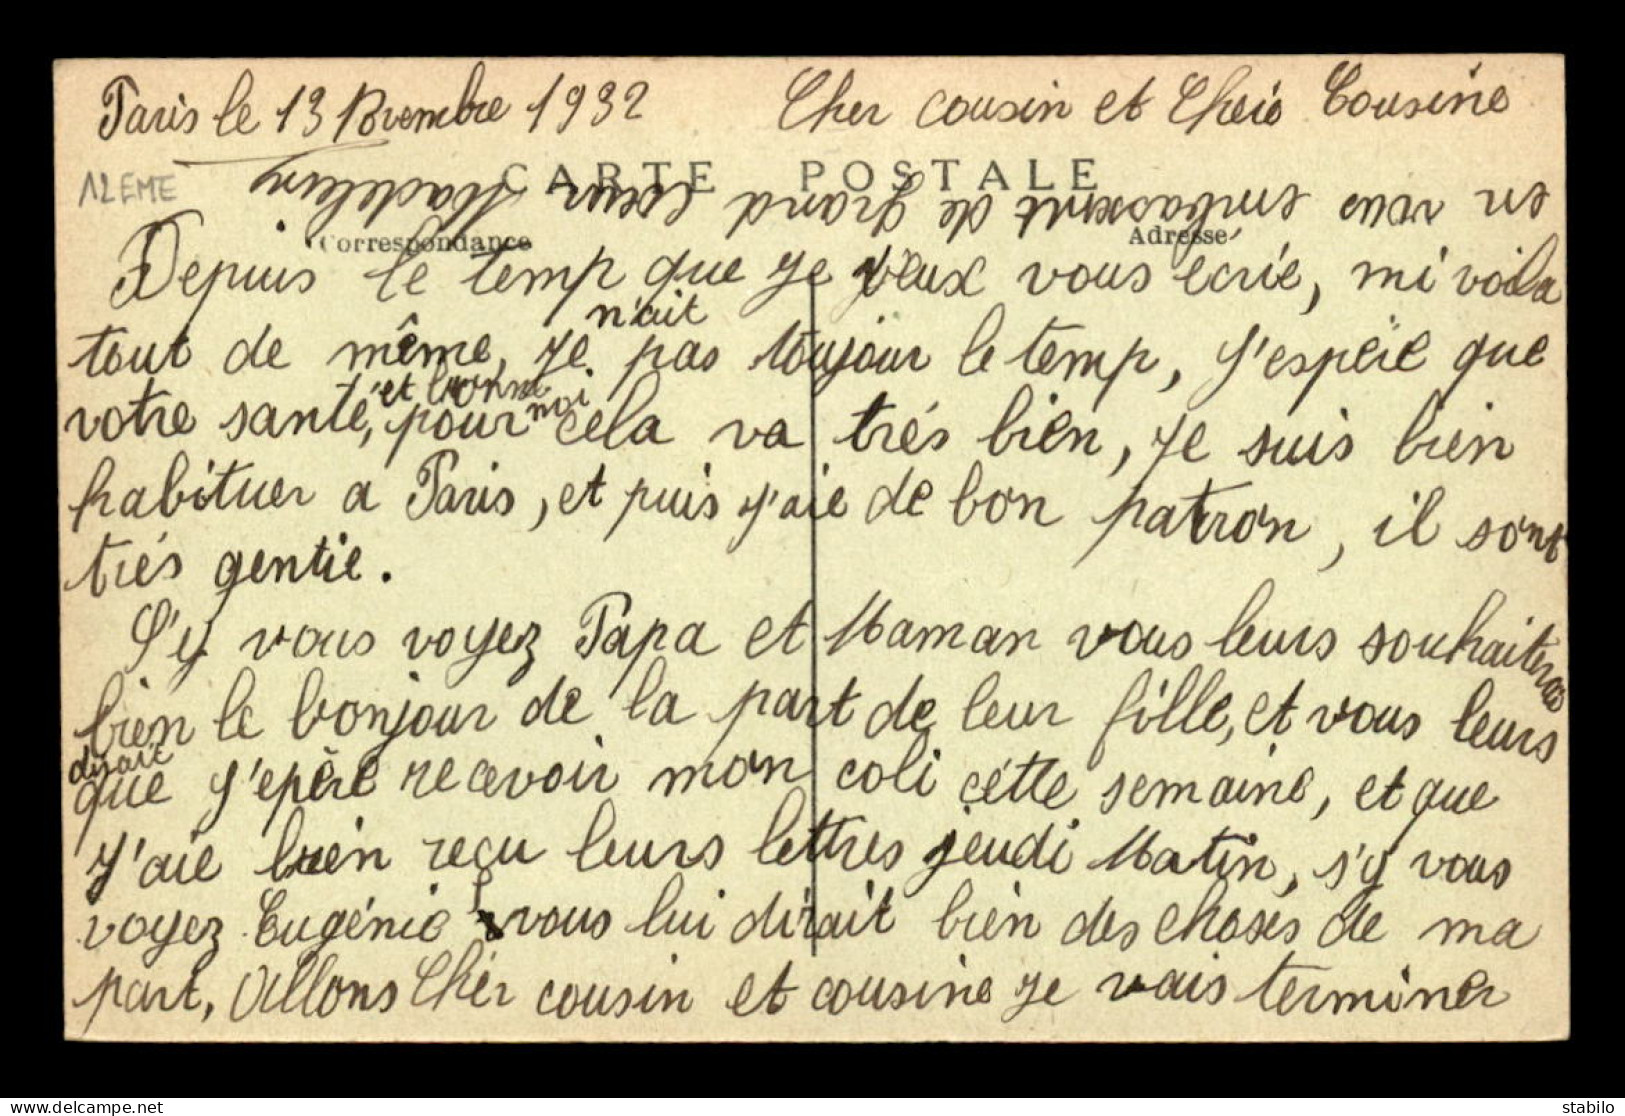 Paris le 13 Novembre 1932 Cher cousin et Chère Cousine
12EME
CARTE POSTALE
Correspondance Adresse
Depuis le temp que je veux vous ecrie, mi voila
tout de même, je n'ait pas toujour le temp, J'espère que
votre santé, et bonne pour moi cela va trés bien, je suis bien
habituer a Paris, et puis j'aie de bon patron, il sont
trés gentie.
S'y vous voyez Papa et Maman vous leurs souhaiterais
bien le bonjour de la part de leur fille, et vous leurs
dirait que J'epère recevoir mon coli cette semaine, et que
J'aie bien reçu leurs lettres jeudi Matin, s'y vous
voyez Eugénie vous lui dirait bien des choses de ma
part, Allons Chér cousin et cousine je vais terminer
en vous embrassent de grand cœur Madeleine